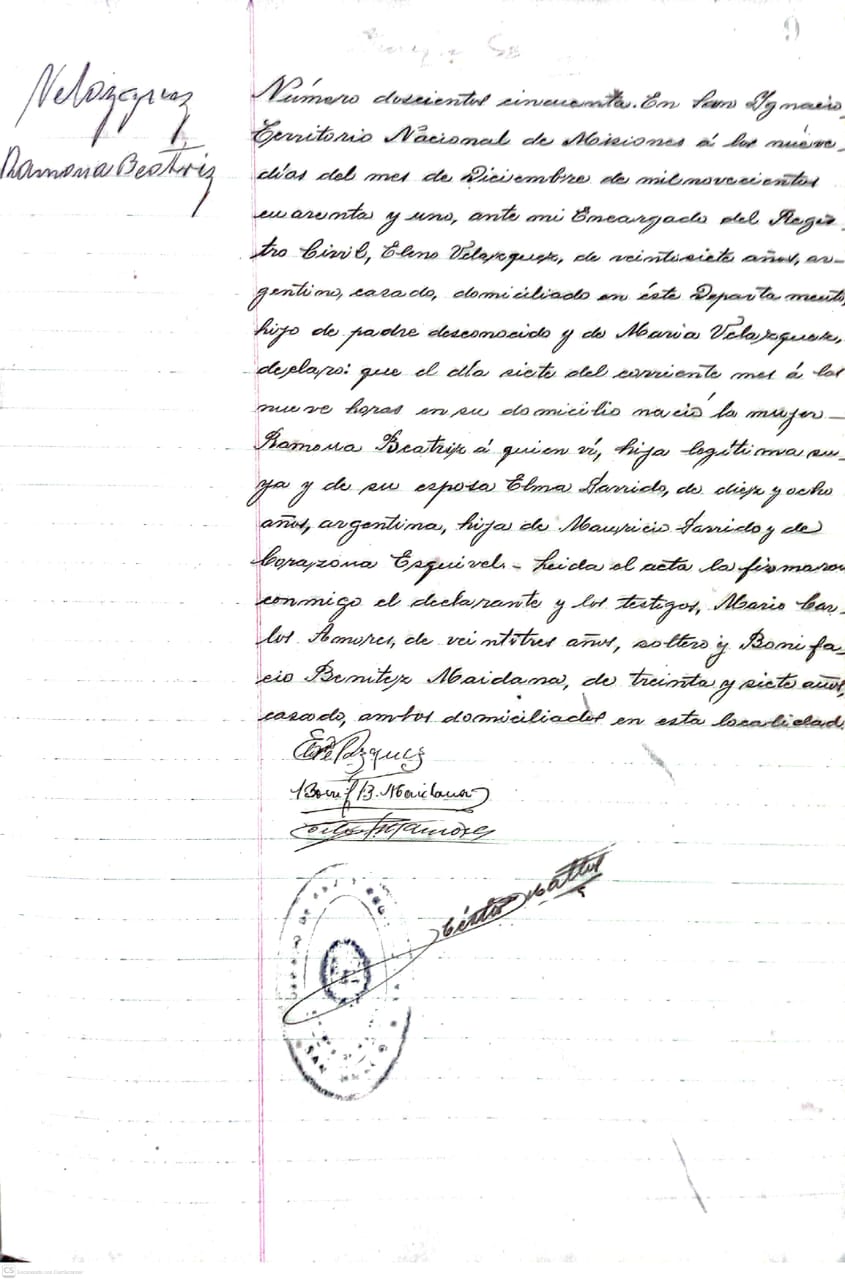 9
Velázquez
Ramona Beatriz
Número doscientos cincuenta. En San Ygnacio,
Territorio Nacional de Misiones á los nueve
días del mes de Diciembre de mil novecientos
cuarenta y uno, ante mi Encargado del Regis-
tro Civil, Eleno Velazquez, de veintisiete años, ar-
gentino, casado, domiciliado en éste Departamento,
hijo de padre desconocido y de Maria Velazquez,
declaro: que el día siete del corriente mes á las
nueve horas en su domicilio nació la mujer
Ramona Beatriz á quien ví, hija legítima su-
ya y de su esposa Elma Garrido, de diez y ocho
años, argentina, hija de Mauricio Garrido y de
Corazona Esquivel. - Leida el acta la firmaron
conmigo el declarante y los testigos, Mario Car-
los Amores, de veintitres años, soltero y Bonifa-
cio Benitez Maidana, de treinta y siete años,
casado, ambos domiciliados en esta localidad.
Bonif B. Maidana
SAN
CS Escaneado con CamScanner